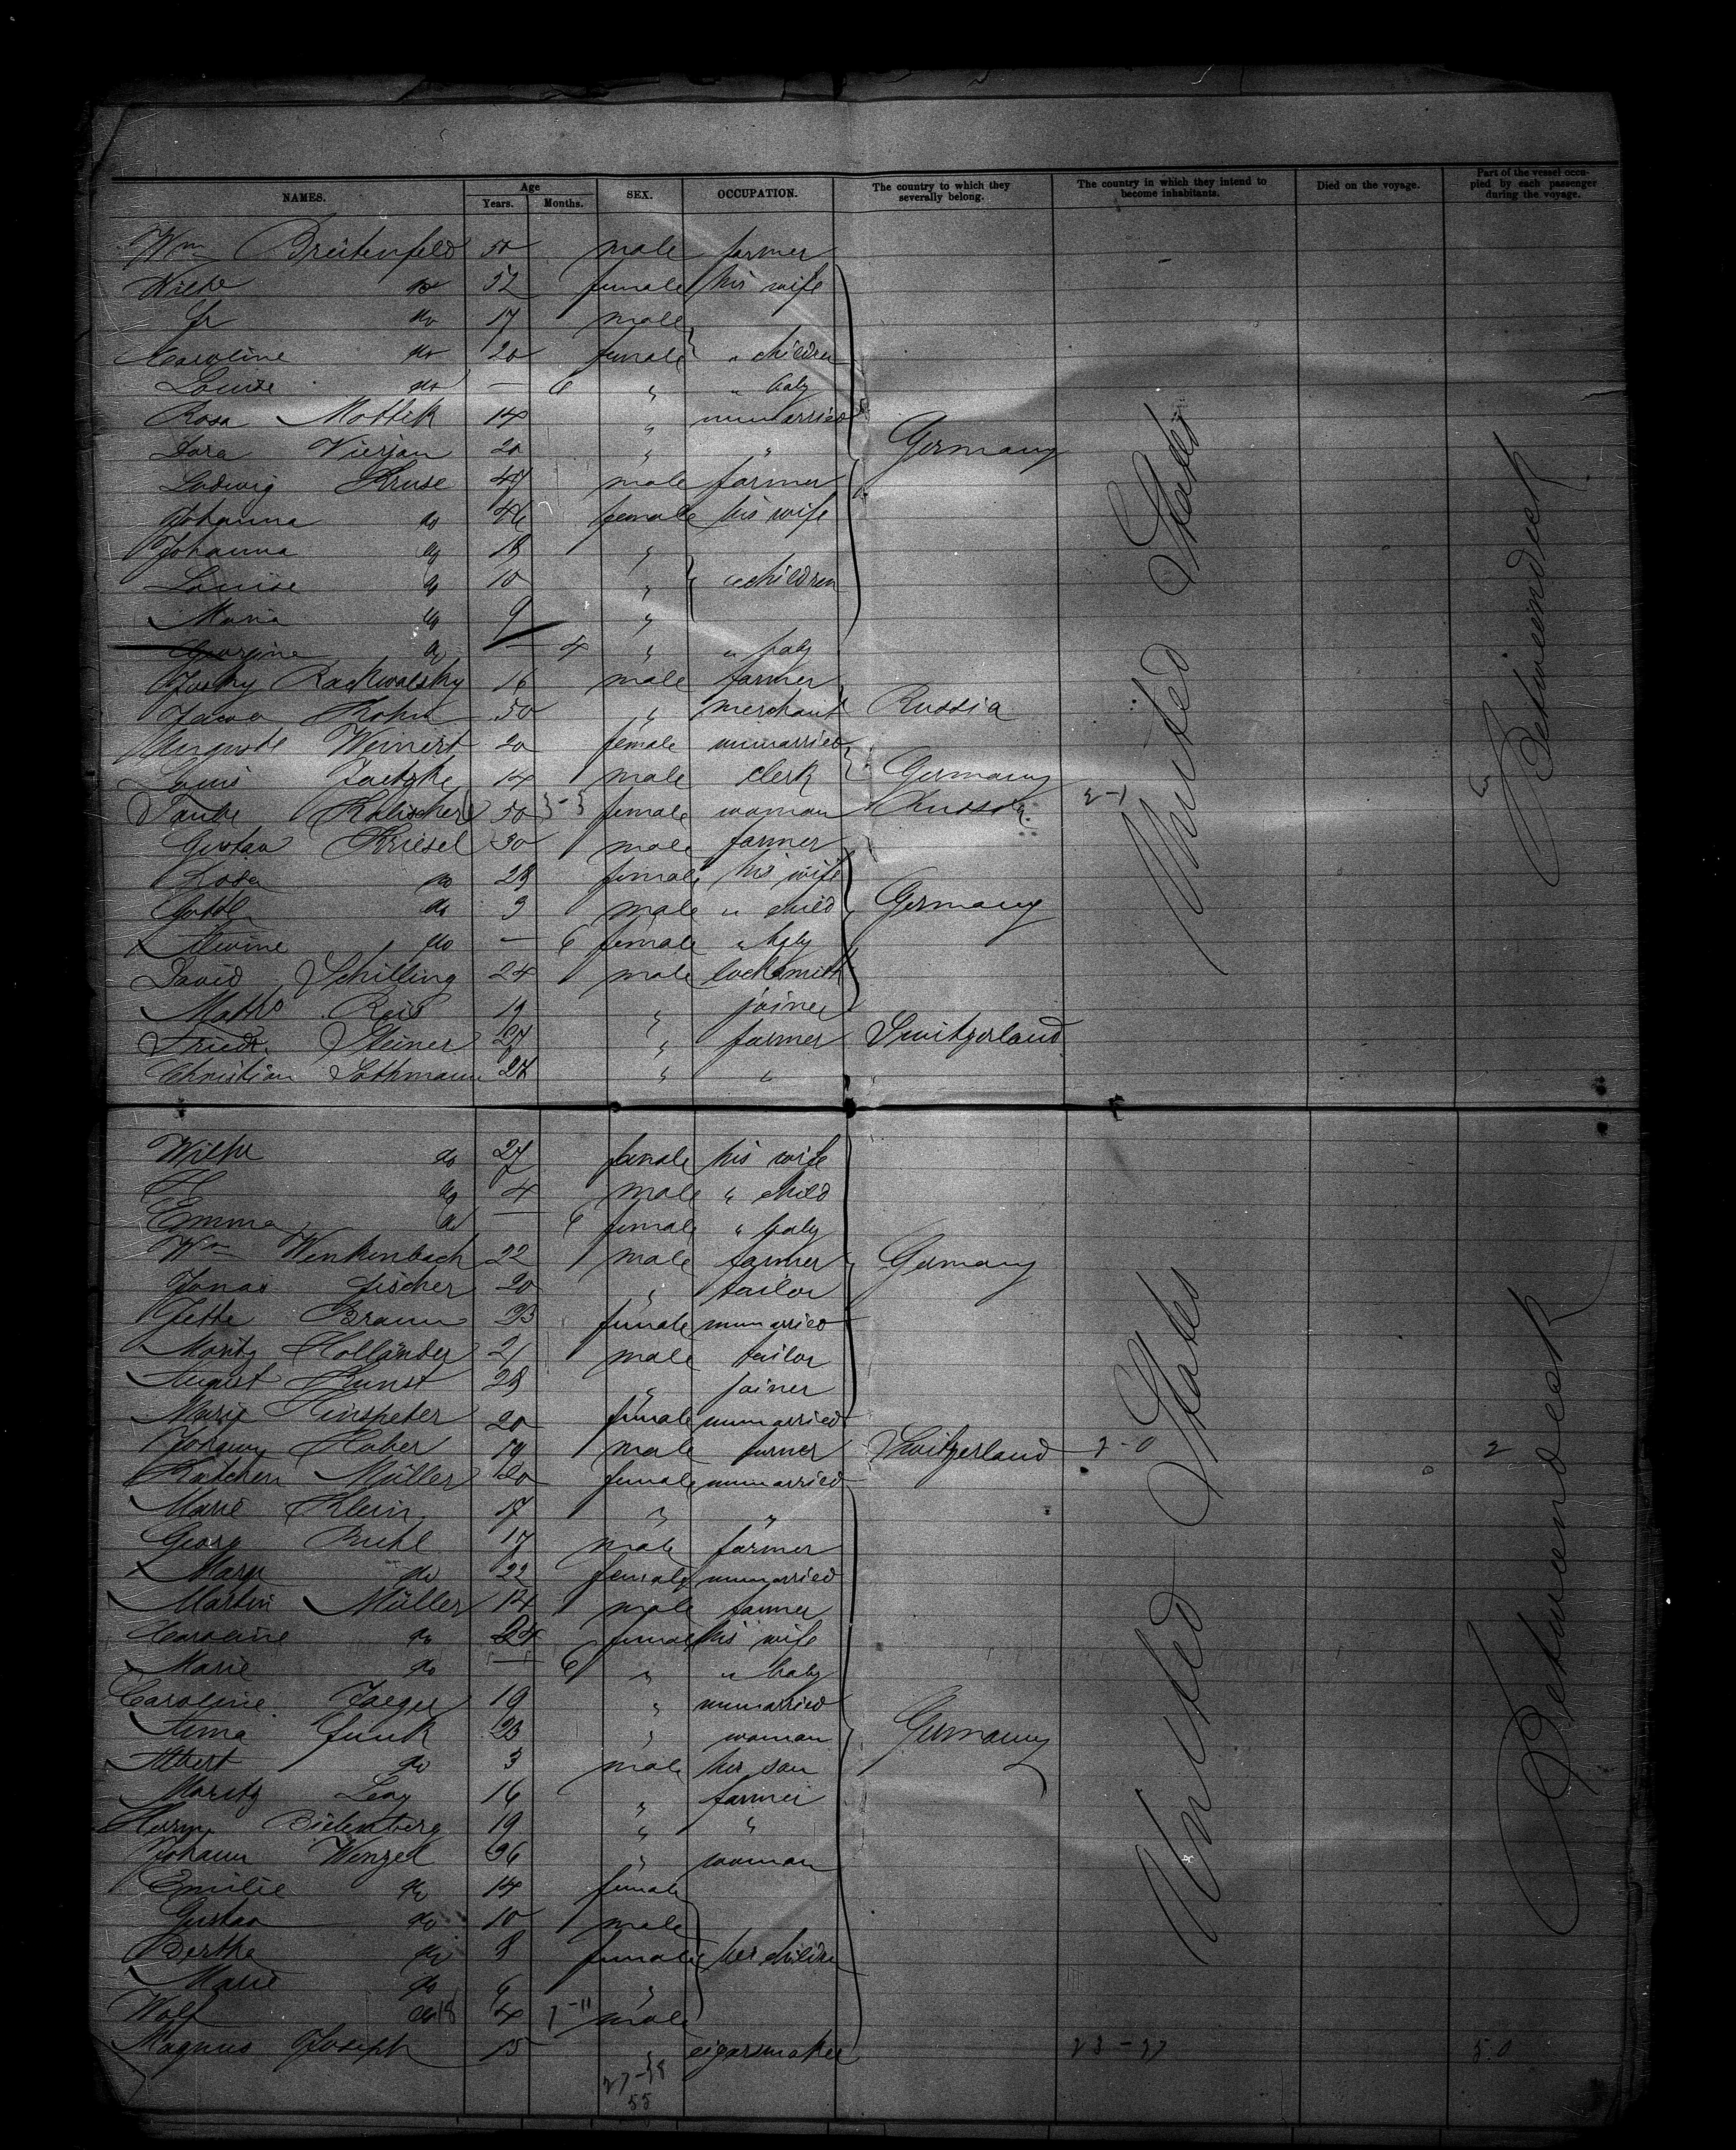 NAMES. Age Years. Months. SEX. OCCUPATION. The country to which they severally belong. The country in which they intend to become inhabitants. Died on the voyage. Part of the vessel occupied by each passenger during the voyage.
Wm Breitenfeld 50 male farmer
Wilhe do 52 female his wife
Jr do 17 male
Caroline do 20 female " children
Louise do — 6 " " baby
Rosa Mottek 14 " unmarried
Dora Vierjan 20 " " Germany
Ludwig Kruse 47 male farmer
Johanna do 46 female his wife
Johanna do 18 "
Louise do 10 " " children
Maria do 9 "
Georgine do — 4 " " baby
Rackwalsky 16 male farmer
Kohn 50 " merchant Russia
Auguste Weinert 20 female unmarried
Louis Jaetzke 14 male clerk Germany
Taube Kalischer 50 female woman Russia
Gustav Kriesel 30 male farmer
Rosa do 28 female his wife
do 3 male " child Germany
Alwine do — 6 female " baby
David Schilling 24 male locksmith
Maths Reis 19 " joiner
Friedr. Steiner 27 " farmer Switzerland
Christian Lothmann 27 " "
United States
Betweendeck
Wilhe do 27 female his wife
H do 4 male " child
Emma do — 6 female " baby
Wm Wenkenbach 22 male farmer Germany
Jonas Fischer 20 " tailor
Jette Braun 23 female unmarried
Moritz Holländer 21 male tailor
August Kunst 28 " joiner
Marie Hinspeter 20 female unmarried
Johann Huber 19 male farmer Switzerland 2-0 2
Kätchen Müller 20 female unmarried
Marie Klein 17 " "
Georg Buhl 17 male farmer
Margr do 22 female unmarried
Martin Müller 24 male farmer
Caroline do 24 female his wife
Marie do — 6 " " baby
Caroline Jaeger 19 " unmarried
Anna Funk 23 " woman Germany
Albert do 3 male her son
Moritz Levy 16 " farmer
Herm. Bielenberg 19 " "
Johann Wenzel 36 " woman
Emilie do 14 female
Gustav do 10 male
Bertha do 8 female her children
Marie do 6 "
Wolf do 4 male
Magnus Joseph 15 " cigarsmaker 23-27 5.0
27-28
55
United States
Betweendeck